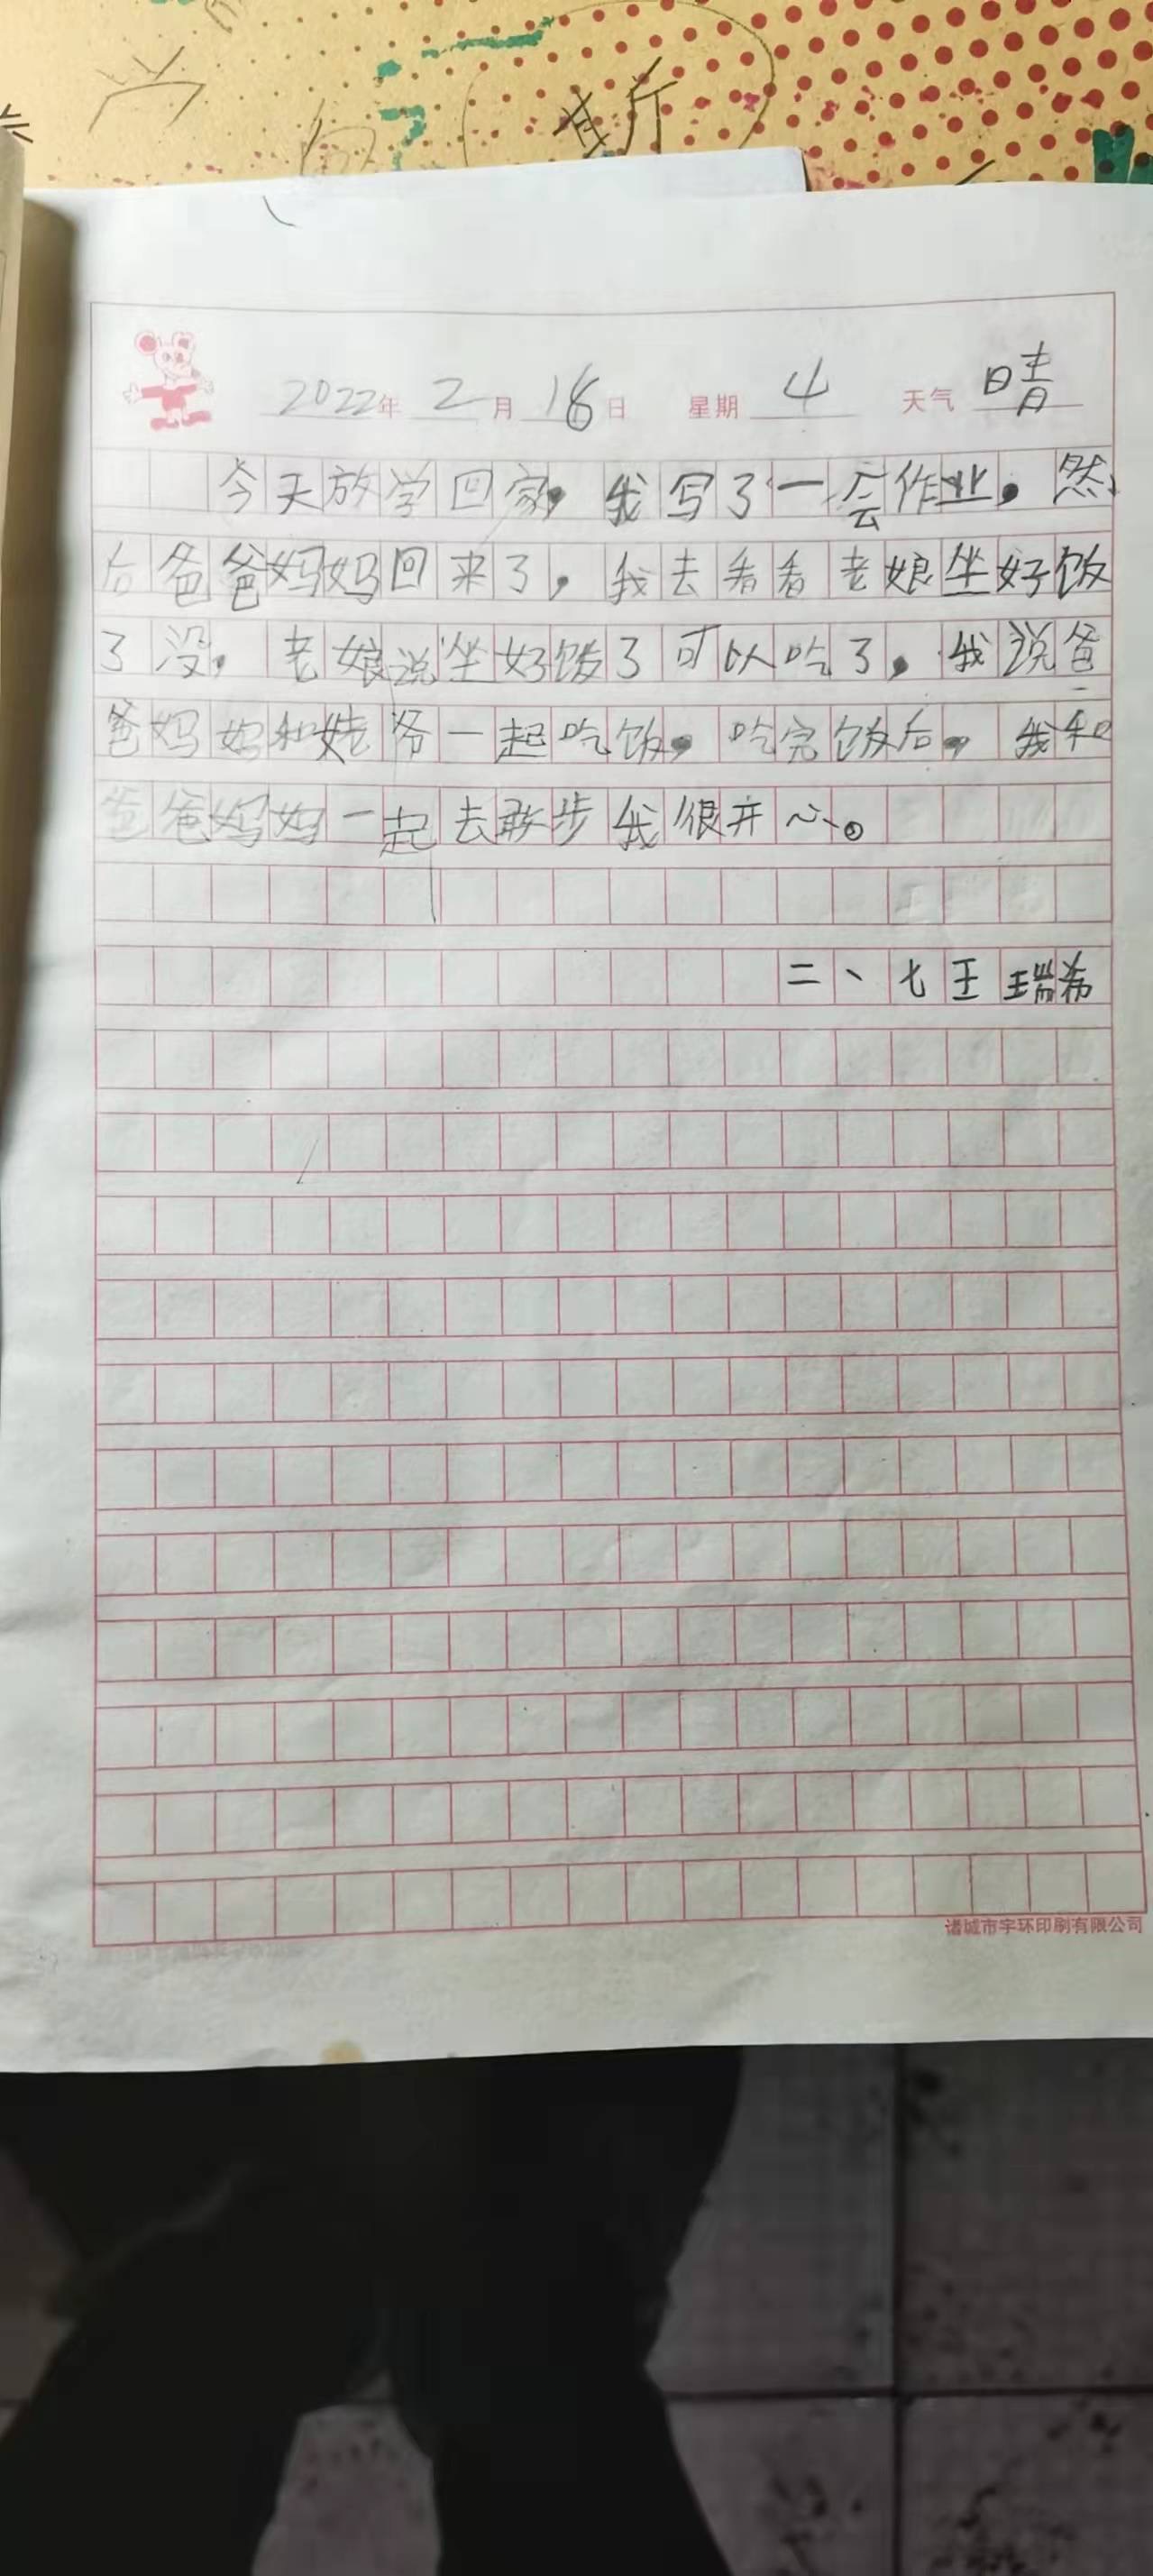 斩
2022年 2月 18日 星期 4 天气 晴
今天放学回家，我写了一会作业，然
后爸爸妈妈回来了，我去看看老娘坐好饭
了没，老娘说坐好饭了可以吃了，我说爸
爸妈妈和姥爷一起吃饭，吃完饭后，我和
爸爸妈妈一起去散步我很开心。
二、七王瑞希
诸城市宇环印刷有限公司